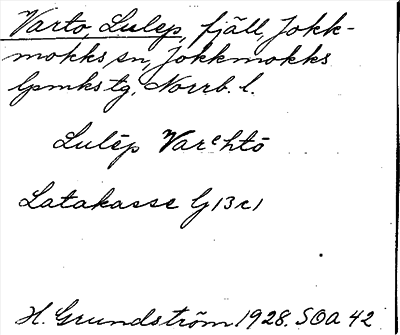 Varto, Lulep, fjäll, Jokk-
mokks sn, Jokkmokks
lpmks tg, Norrb. l.
Lulēp Varᵉhtō
Latakasse G13c1
H. Grundström 1928. SOA 42